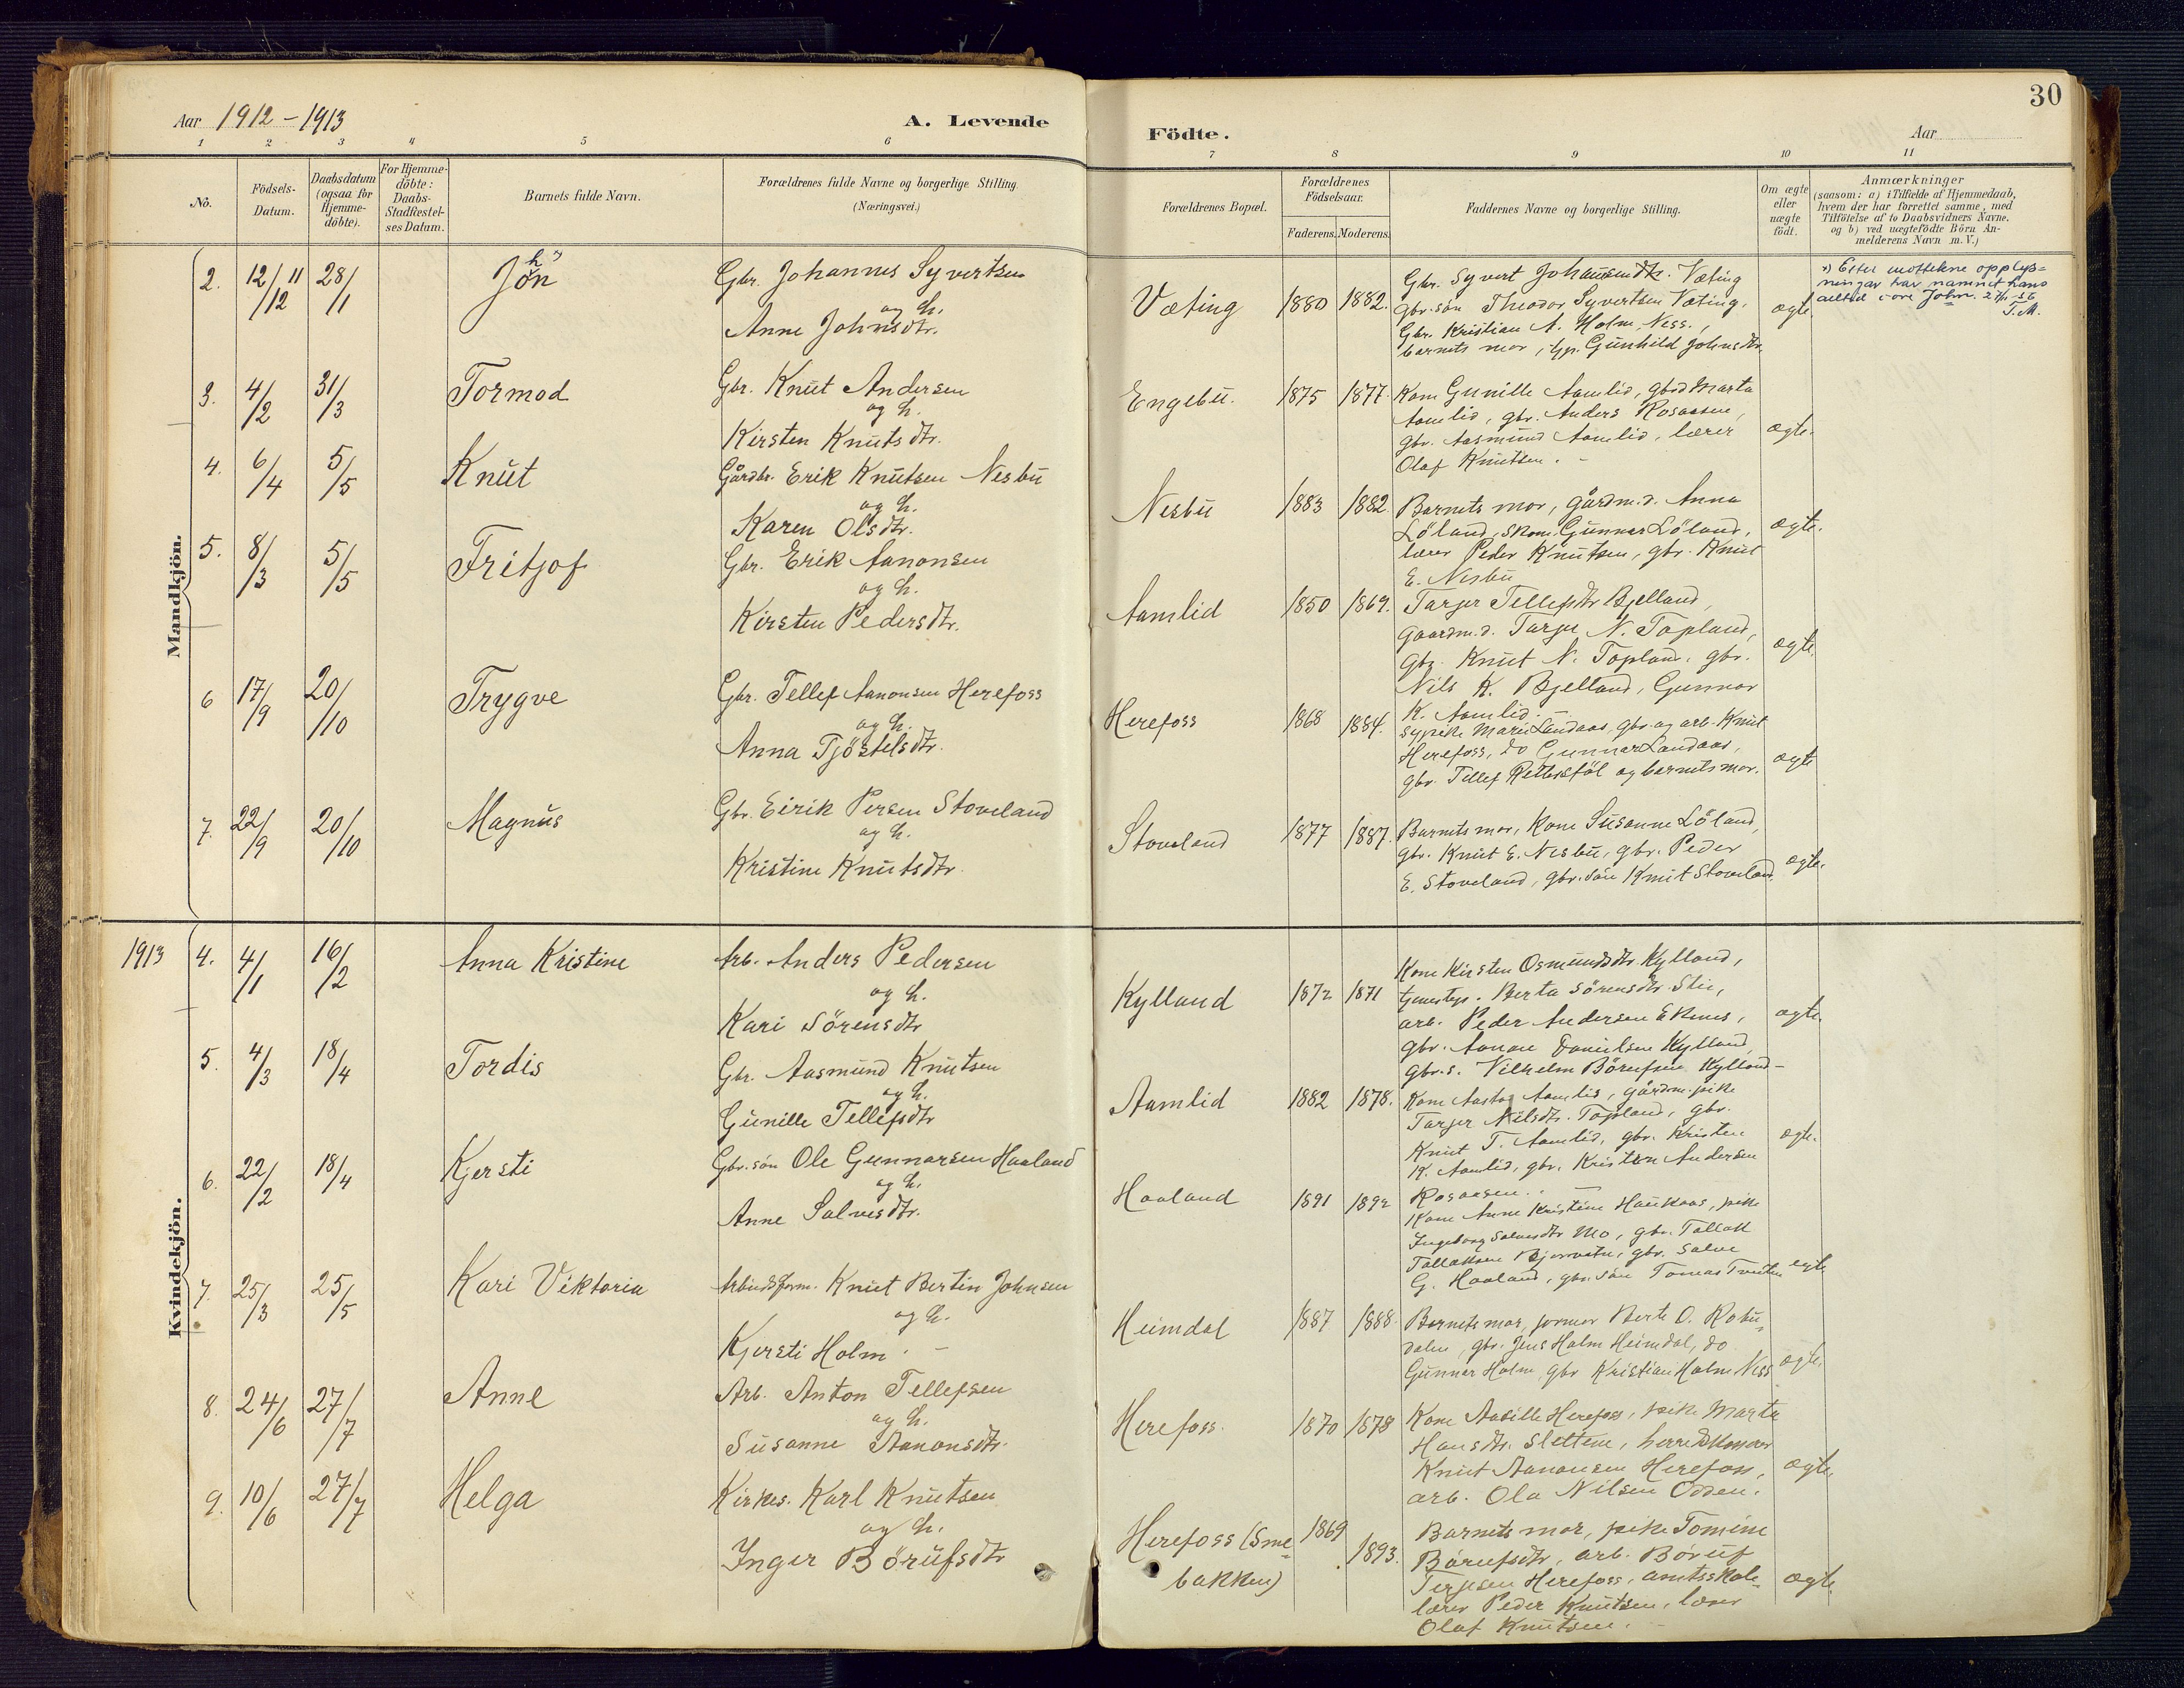 Aar 1912 - 1913
A. Levende
1 2 3 4 5 6
No.
Födsels-
Datum.
Daabsdatum
(ogsaa for
Hjemme-
döbte).
For Hjemme-
döbte:
Daabs-
Stadfæstel-
ses Datum.
Barnets fulde Navn.
Forældrenes fulde Navne og borgerlige Stilling.
(Næringsvei.)
Mandkjön.
2. 12/11 12 28/1 John Gbr. Johannes Syvertsen
og h.
Anne Johnsdtr.
3. 4/2 31/3 Tormod Gbr. Knut Andersen
og h.
Kirsten Knutsdtr.
4. 6/4 5/5 Knut Gårdbr. Erik Knutsen Nesbu
og h.
Karen Olsdtr.
5. 8/3 5/5 Fritjof Gbr. Erik Aanonsen
og h.
Kirsten Pedersdtr.
6 17/9 20/10 Trygve Gbr. Tellef Aanonsen Herefoss
og h.
Anna Tjöstelsdtr.
7. 22/9 20/10 Magnus Gbr. Eirik Persen Stoveland
og h.
Kristine Knutsdtr.
1913
Kvindekjön.
4. 4/1 16/2 Anna Kristine Arb. Anders Pedersen
og h.
Kari Sörensdtr
5. 4/3 18/4 Tordis Gbr. Aasmund Knutsen
og h.
Gunille Tellefsdtr
6. 22/2 18/4 Kjersti Gbr.sön Ole Gunnarsen Haaland
og h.
Anne Salvesdtr.
7. 25/3 25/5 Kari Viktoria Arbeidsform. Knut Bertin Johnsen
og h.
Kjersti Holm. -
8. 24/6 27/7 Anne Arb. Anton Tellefsen
og h.
Susanne Aanonsdtr.
9. 10/6 27/7 Helga Kirkes. Karl Knutsen
og h.
Inger Börufsdtr
30
Födte.
Aar
7 8 9 10 11
Forældrenes Bopæl.
Forældrenes
Födselsaar.
Faderens. Moderens.
Faddernes Navne og borgerlige Stilling.
Om ægte
eller
uægte
födt.
Anmærkninger
(saasom: a) i Tilfælde af Hjemmedaab,
hvem der har forrettet samme, med
Tilföielse af to Daabsvidners Navne.
og b) ved uægtefödte Börn An-
melderens Navn m. V.)
Væting 1880 1882. Gbr. Syvert Væting
gbr.sön Theodor Syvertsen Væting.
Gbr. Kristian A. Holm, Ness.,
barnets mor, Gunhild Johnsdtr.
ægte.
x) Etter mottekne opplys-
ningar har namnet hans
alltid vore John. 27/1 56
T.M.
Engebu. 1875 1877. Kone Gunille Aamlid, gbrd Marta
Aamlid, gbr. Anders Rosaasen,
gbr. Aasmund Aamlid, lærer
Olaf Knutsen. -
ægte.
Nesbu 1883 1882. Barnets mor, gårdm.d. Anna
Löland, Gunnar Löland,
lærer Peder Knutsen, gbr. Knut
E. Nesbu
ægte.
Aamlid 1850 1869. Tarjer Tellefsdtr Bjelland,
gaardm.d. Tarjer N. Topland,
gbr. Knut N. Topland, gbr.
Nils K. Bjelland, Gunnar
K. Aamlid. -
ægte.
Herefoss 1868 1884. sypike Marie Landaas, gbr. og arb. Knut
Herefoss, do Gunnar Landaas,
gbr. Tellef og barnets mor.
ægte
Stoveland 1877 1887. Barnets mor, kone Susanne Löland,
gbr. Knut E. Nesbu, gbr. Peder
E. Stoveland, gbr.sön Knut Stoveland.
ægte.
Kylland 1872 1871 Kone Kirsten Osmundsdtr Kylland,
Berta Sörensdtr. Stie,
arb. Peder Andersen
gbr. Aanon Danielsen Kylland
gbr.s. Vilhelm Börufsen Kylland -
ægte.
Aamlid 1882 1878. Kone Aamlid, gårdm.pike
Tarjer Nilsdtr. Topland, gbr.
Knut T. Aamlid, gbr. Kristen
K. Aamlid, gbr. Kristen Andersen
Rosaasen. -
ægte.
Haaland 1891 1892 Kone Anne Kristine Haukaas, pike
Ingeborg Salvesdtr Mo, gbr. Tallak
Tallaksen gbr. Salve
G. Haaland, gbr.sön Tomas
egte
Heimdal 1887 1888. Barnets mor, jormor Berte O.
dalen, gbr. Jens Holm Heimdal, do
Gunnar Holm, gbr Kristian Holm Ness
ægte.
Herefoss. 1870 1878 Kone Aasille Herefoss, pike Marta
Hansdtr. Slettene,
Knut Aanonsen Herefoss,
arb. Ola Nilsen Odden.
ægte.
Herefoss (Sme-
bakken) 1869 1893. Barnets mor, pike Tomine
Börufsdtr, arb. Böruf
Terjesen Herefoss, amtsskole-
lærer Peder Knutsen, lærer
Olaf Knutsen. -
ægte.